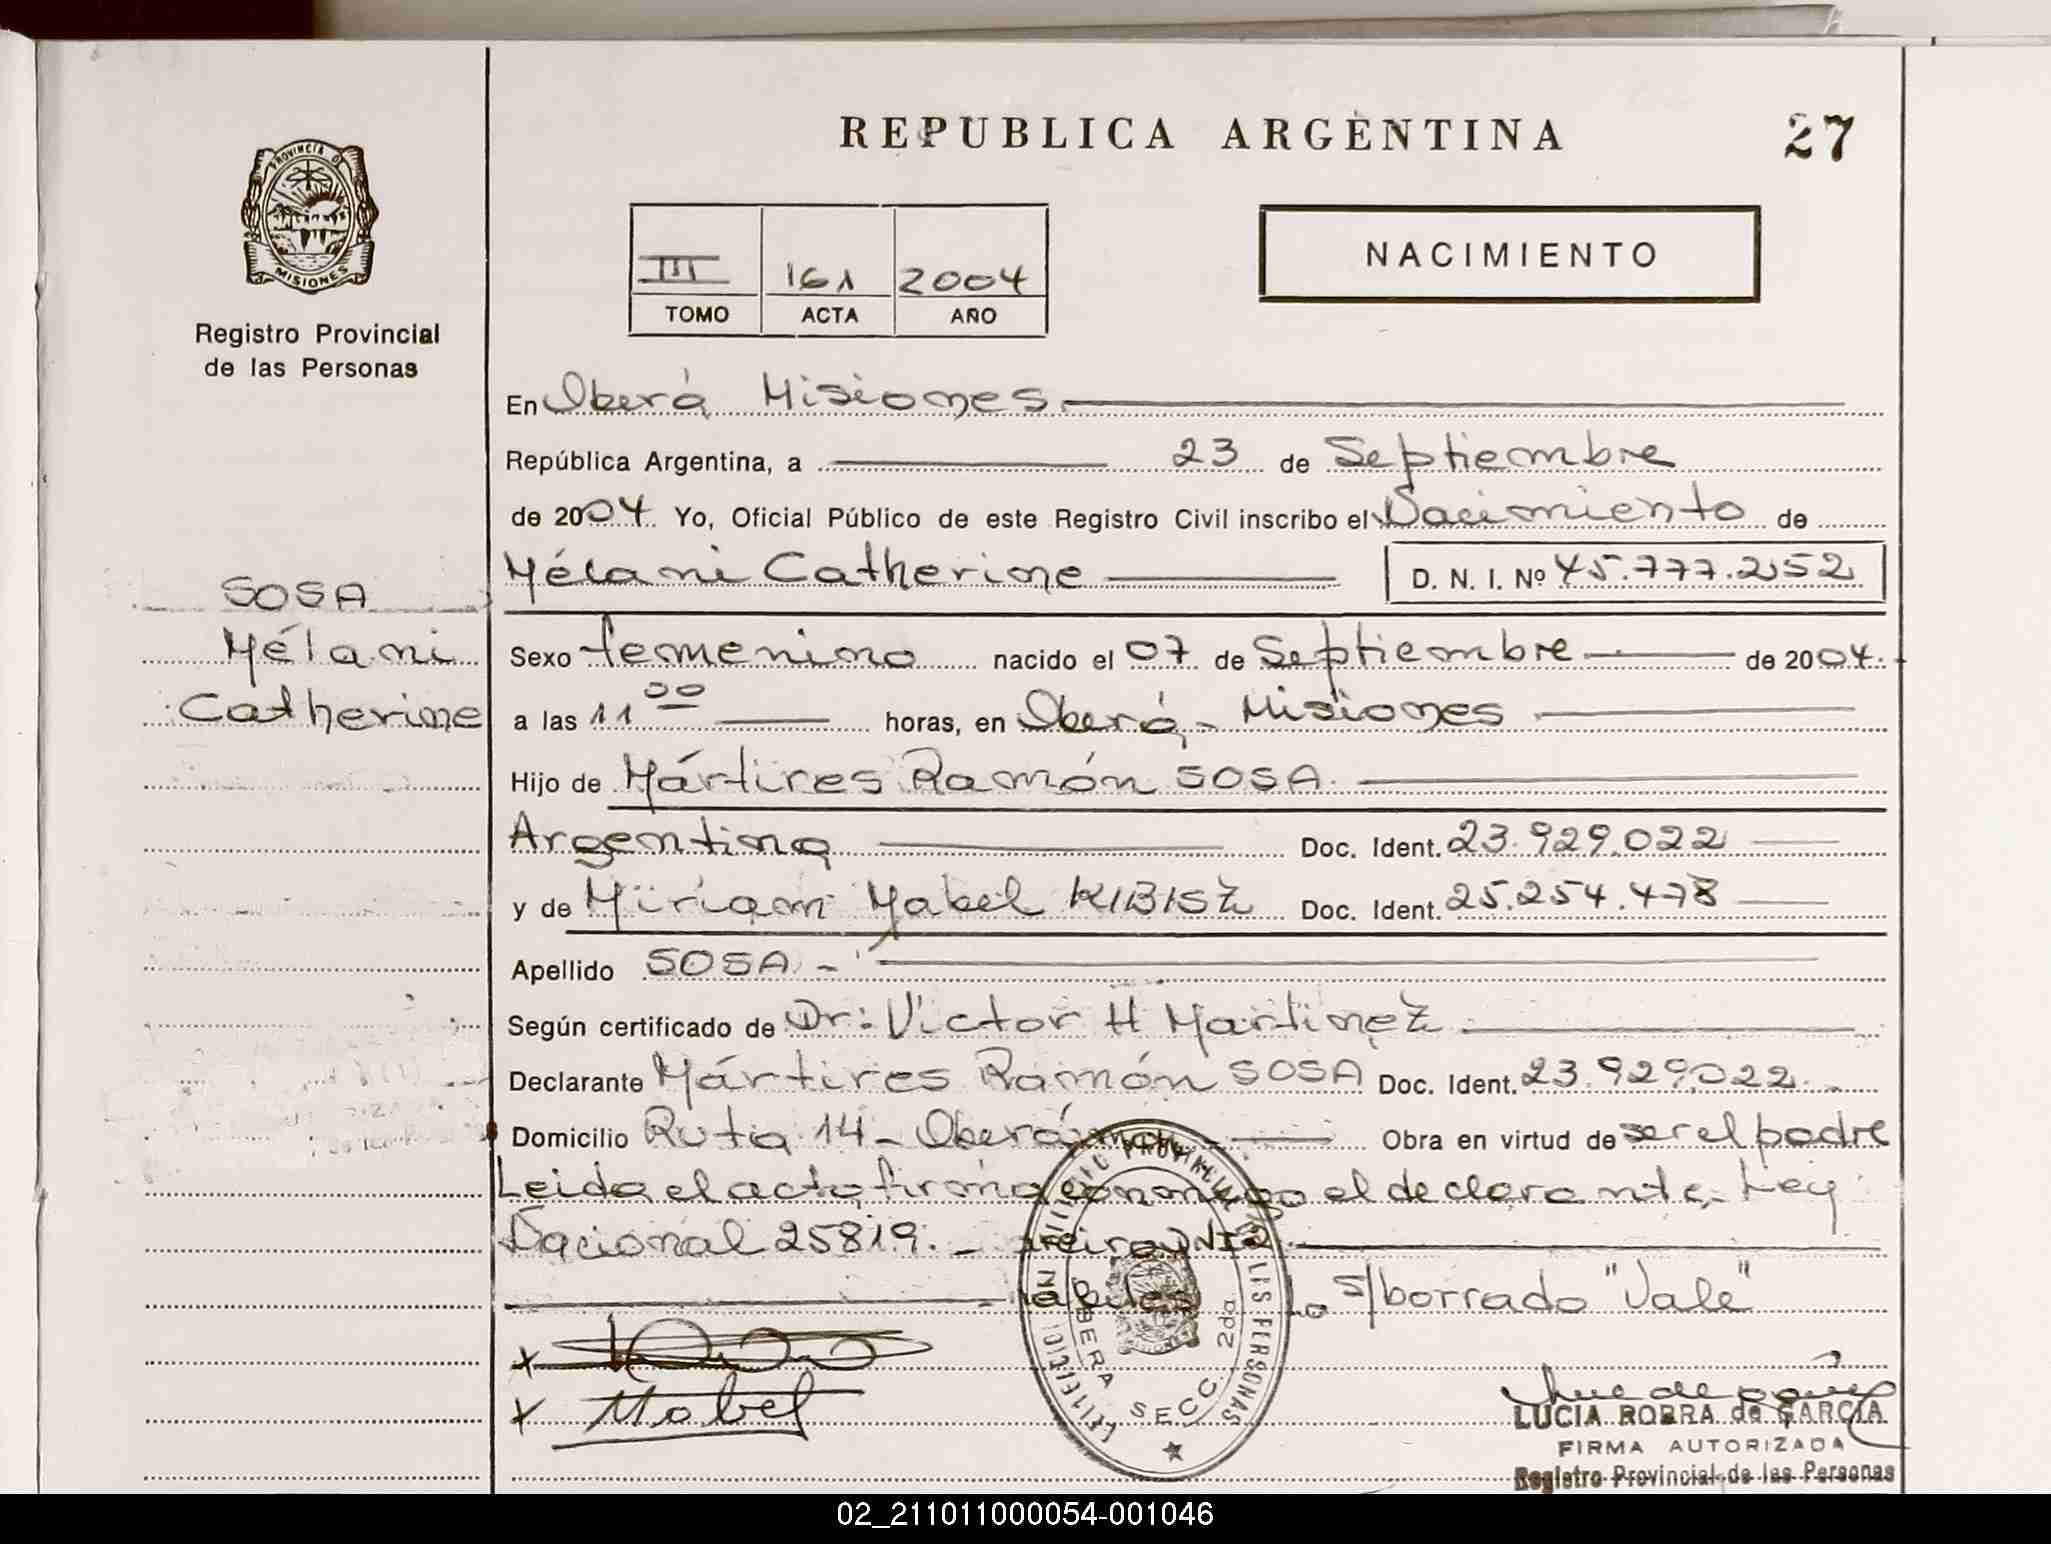 REPUBLICA ARGENTINA
27
PROVINCIA DE
MISIONES
Registro Provincial
de las Personas
III 161 2004
TOMO ACTA AÑO
NACIMIENTO
En Oberá Misiones
República Argentina, a 23 de Septiembre
de 2004 Yo, Oficial Público de este Registro Civil inscribo el Nacimiento de
Mélani Catherine D. N. I. Nº 45.777.252
SOSA
Mélani
Catherine
Sexo femenino nacido el 07 de Septiembre de 2004.
a las 11 00 horas, en Oberá - Misiones
Hijo de Mártires Ramón SOSA.
Argentina Doc. Ident. 23.929.022
y de Miriam Mabel KIBISZ Doc. Ident. 25.254.478
Apellido SOSA -
Según certificado de Dr: Victor H Martinez
Declarante Mártires Ramón SOSA Doc. Ident. 23.929022. -
Domicilio Ruta 14 - Oberá Obra en virtud de ser el padre
Leida el acta firma conmigo el declarante. Ley
Nacional 25819. -
s/borrado "Vale"
Mabel
PROVINCIAL DE LAS PERSONAS
OBERA SECC. 2da
LUCIA ROBRA de GARCIA
FIRMA AUTORIZADA
Registro Provincial de las Personas
02_211011000054-001046